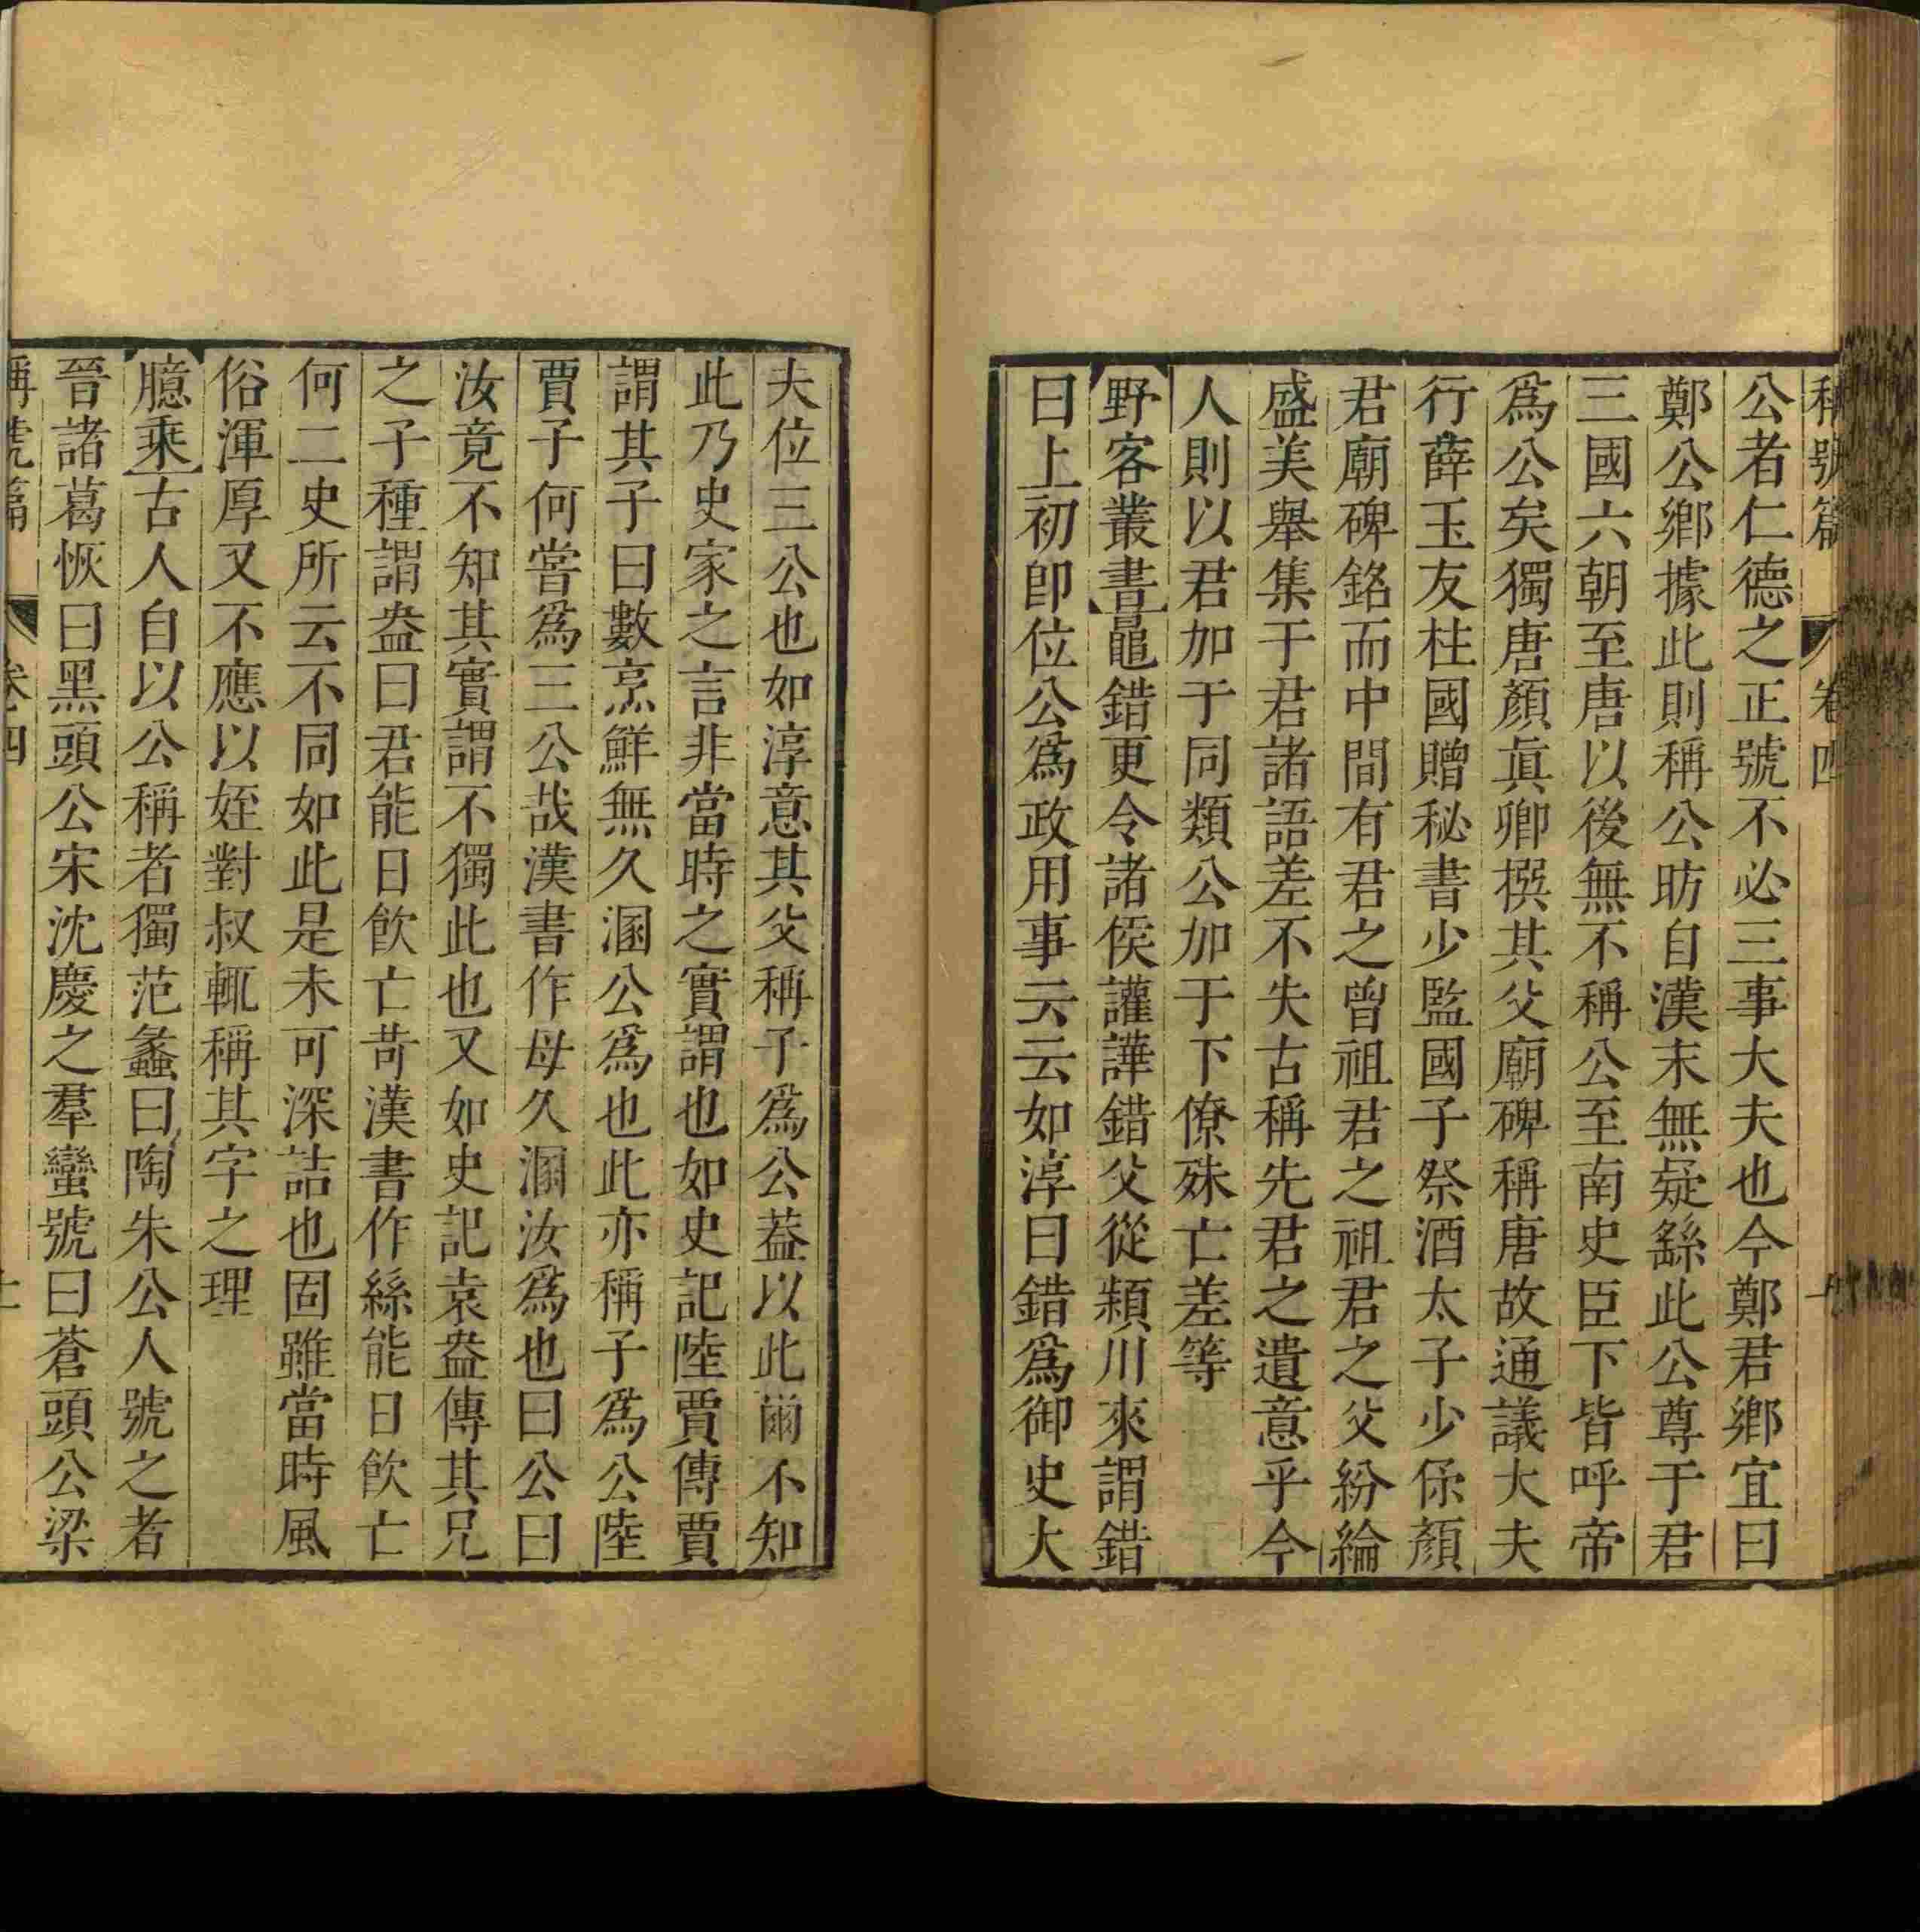 稱號篇 卷四
公者仁德之正號不必三事大夫也今鄭君鄉宜曰
鄭公鄉據此則稱公昉自漢末無疑繇此公尊于君
三國六朝至唐以後無不稱公至南史臣下皆呼帝
爲公矣獨唐顏眞卿撰其父廟碑稱唐故通議大夫
行薛王友柱國贈秘書少監國子祭酒太子少保顏
君廟碑銘而中間有君之曾祖君之祖君之父紛綸
盛美舉集于君諸語差不失古稱先君之遺意乎今
人則以君加于同類公加于下僚殊亡差等
野客叢書鼂錯更令諸侯讙譁錯父從潁川來謂錯
曰上初卽位公爲政用事云云如淳曰錯爲御史大
夫位三公也如淳意其父稱子爲公葢以此爾不知
此乃史家之言非當時之實謂也如史記陸賈傳賈
謂其子曰數烹鮮無久溷公爲也此亦稱子爲公陸
賈子何嘗爲三公哉漢書作母久溷汝爲也曰公曰
汝竟不知其實謂不獨此也又如史記袁盎傳其兄
之子種謂盎曰君能日飮亡苛漢書作絲能日飮亡
何二史所云不同如此是未可深詰也固雖當時風
俗渾厚又不應以姪對叔輒稱其字之理
臆乘古人自以公稱者獨范蠡曰陶朱公人號之者
晉諸葛恢曰黑頭公宋沈慶之羣蠻號曰蒼頭公梁
稱號篇 卷四